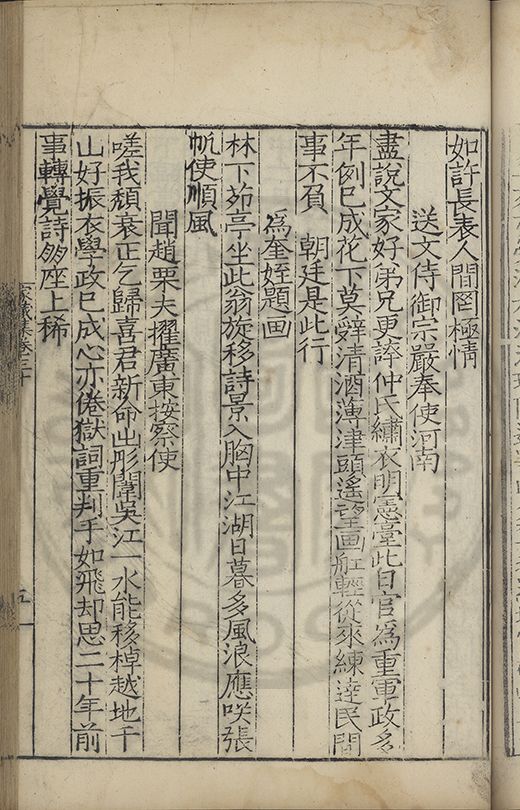 如許長表人間罔極情
送文侍御宗嚴奉使河南
盡說文家好弟兄更誇仲氏繡衣明憲臺此日官爲重軍政多
年例已成花下莫辭清酒薄津頭遙望画舡輕從來練達民間
事不負 朝廷是此行
爲奎姪題画
林下茆亭坐此翁旋移詩景入胸中江湖日暮多風浪應咲張
帆使順風
聞趙栗夫擢廣東按察使
嗟我頹衰正乞歸喜君新命出彤闈吳江一水能移棹越地千
山好振衣學政已成心亦倦獄詞重判手如飛却思二十年前
事轉覺詩朋座上稀
家藏集卷三十
五